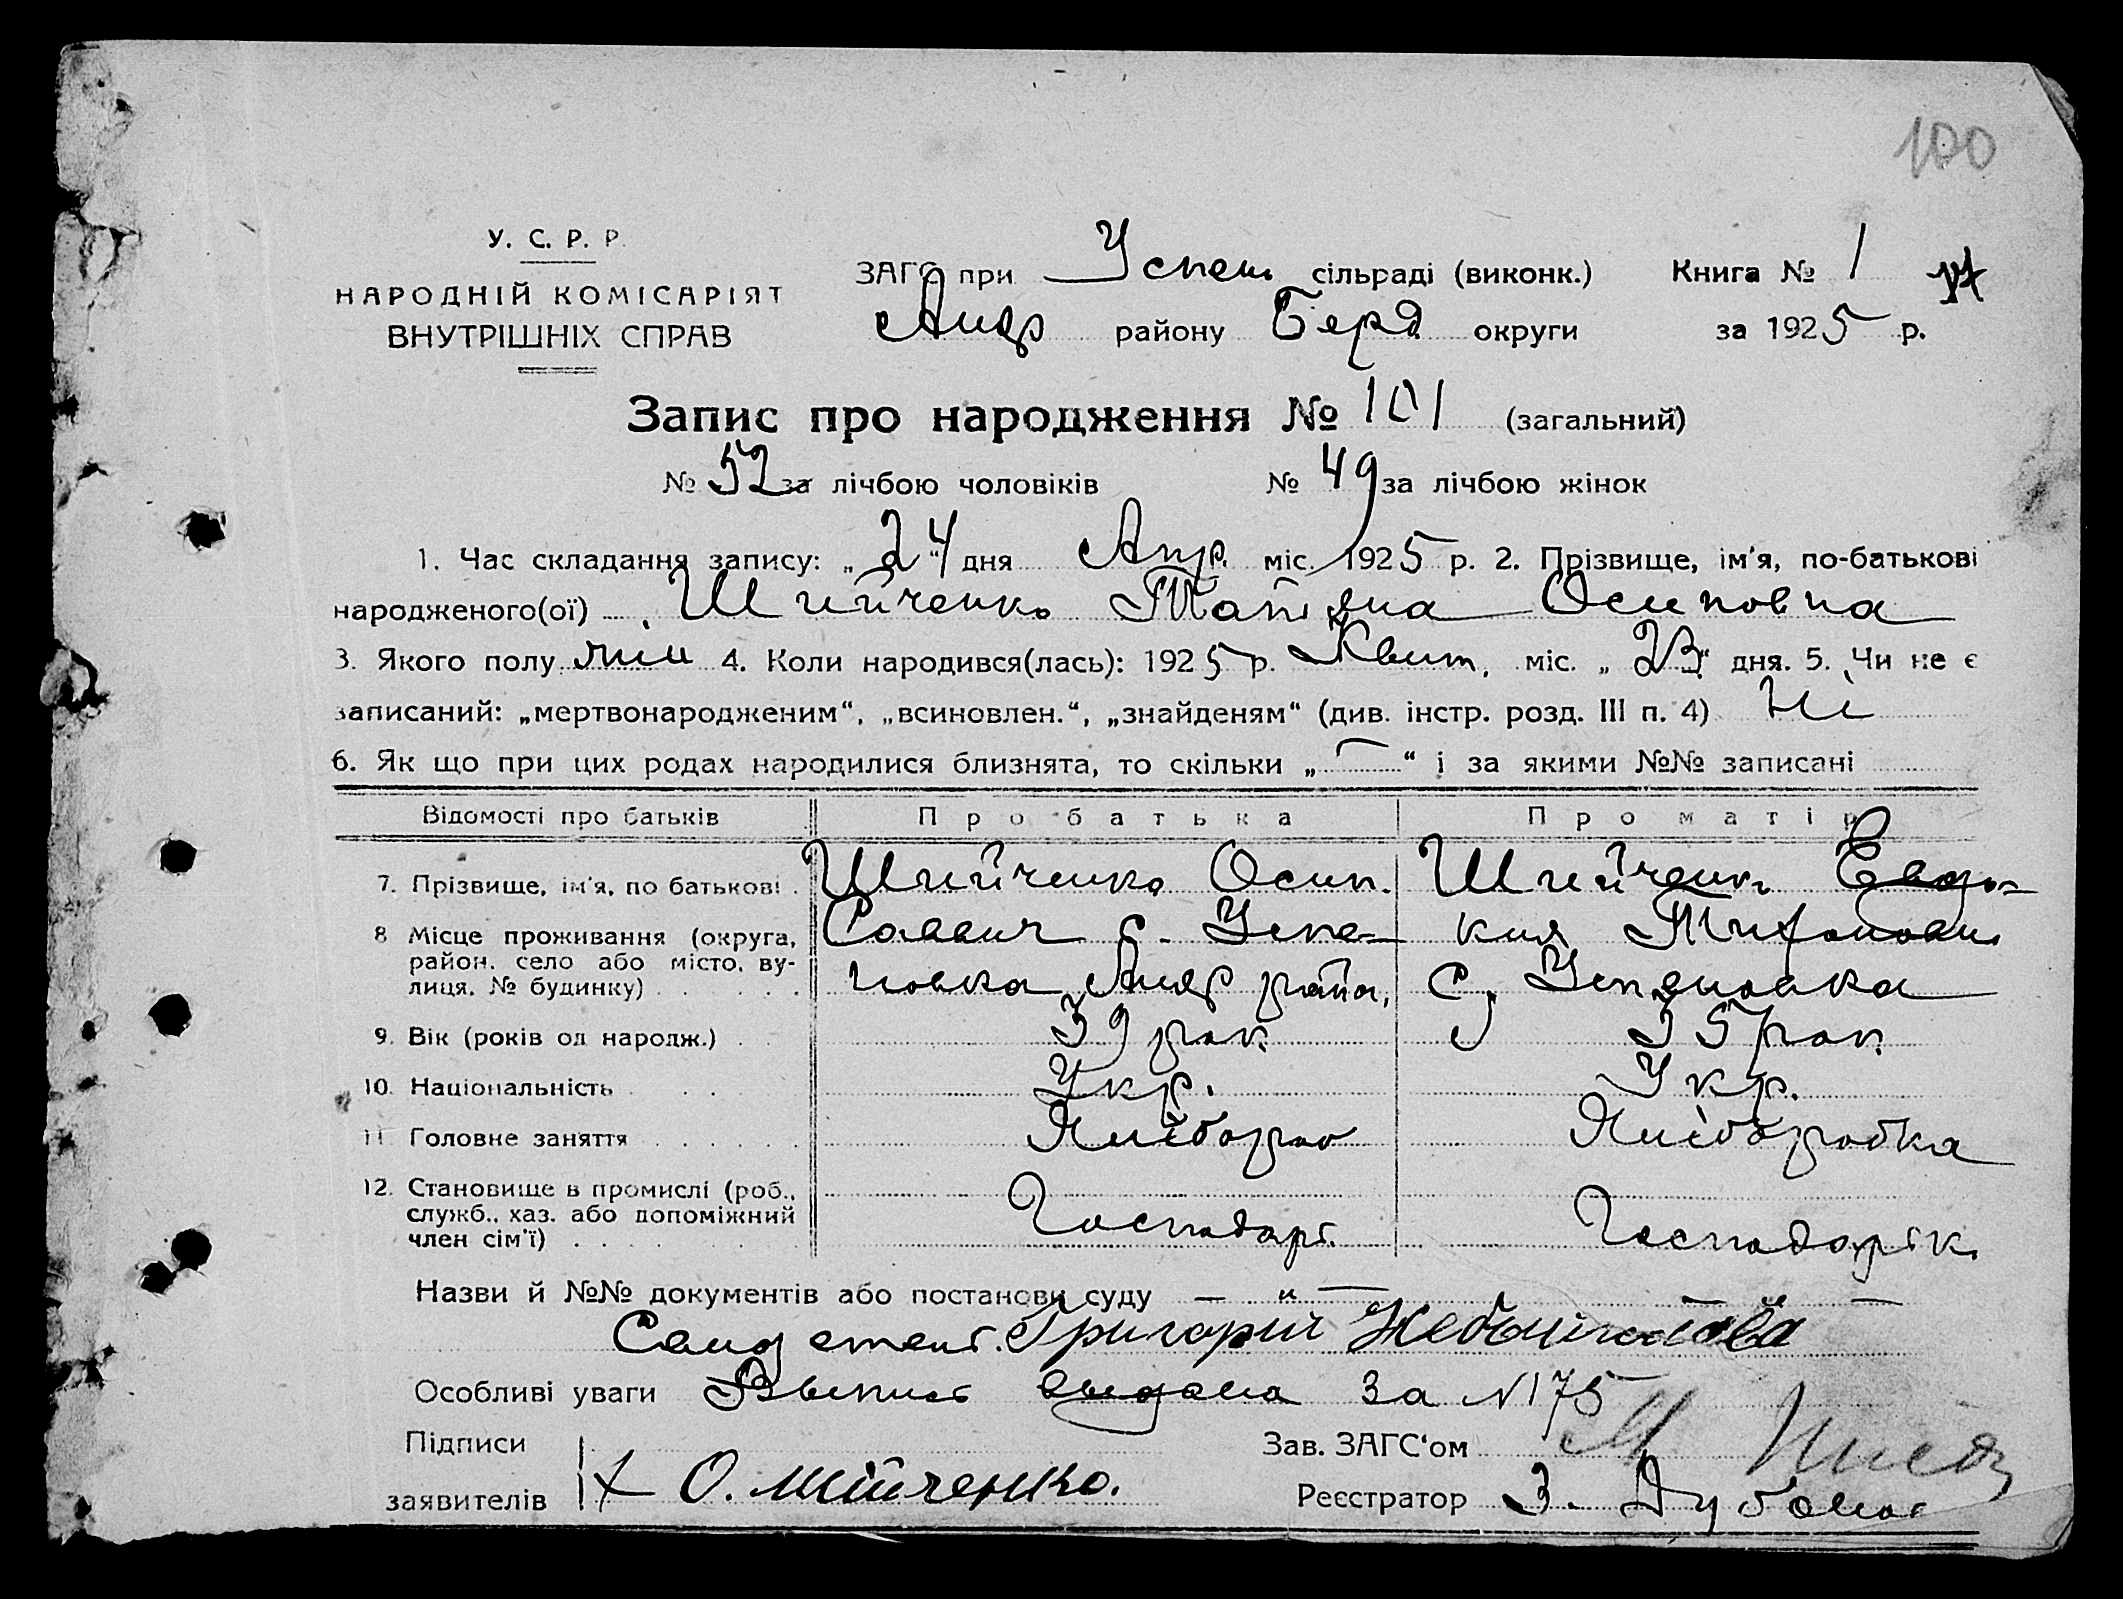 100
У. С. Р. Р.
НАРОДНІЙ КОМІСАРІЯТ
ВНУТРІШНІХ СПРАВ
ЗАГС при Успен. сільраді (виконк.) Книга № 1
Андр району Берд округи за 1925 р.
Запис про народження № 101 (загальний)
№ 52 за лічбою чоловіків № 49 за лічбою жінок
1. Час складання запису: „24“ дня Апр. міс. 1925 р. 2. Прізвище, ім'я, по-батькові
народженого(ої) Шийченко Осиповна
3. Якого полу 4. Коли народився(лась): 1925 р. Квит. міс. „23“ дня. 5. Чи не є
записаний: „мертвонародженим“, „всиновлен.“, „знайденям“ (див. інстр. розд. III п. 4) Ні
6. Як що при цих родах народилися близнята, то скільки „—“ і за якими №№ записані
Відомості про батьків Про батька Про матір
7. Прізвище, ім'я, по батькові Шийченко Осип. Шийченк Евдо-
8 Місце проживання (округа, Саввич с. Успе- кия
район, село або місто, ву- новка Андр район, с. Успеновка
лиця, № будинку)
9. Вік (років од народж.) 39 рок 35 рок
10. Національність Укр. Укр.
11 Головне заняття Хлібороб Хліборобка
12. Становище в промислі (роб.,
служб., хаз. або допоміжний Господарь Господарк.
член сім'ї)
Назви й №№ документів або постанови суду — „ —
Григорий
Особливі уваги Выпись выдана за №175
Підписи Зав. ЗАГС‘ом М
заявителів + О. Шийченко. Реєстратор З.